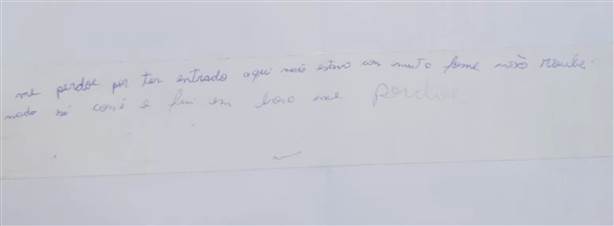 me perdoe por ter entrado aqui mais estava com muito fome não roubei
nada só comi e fui em bora me perdoe